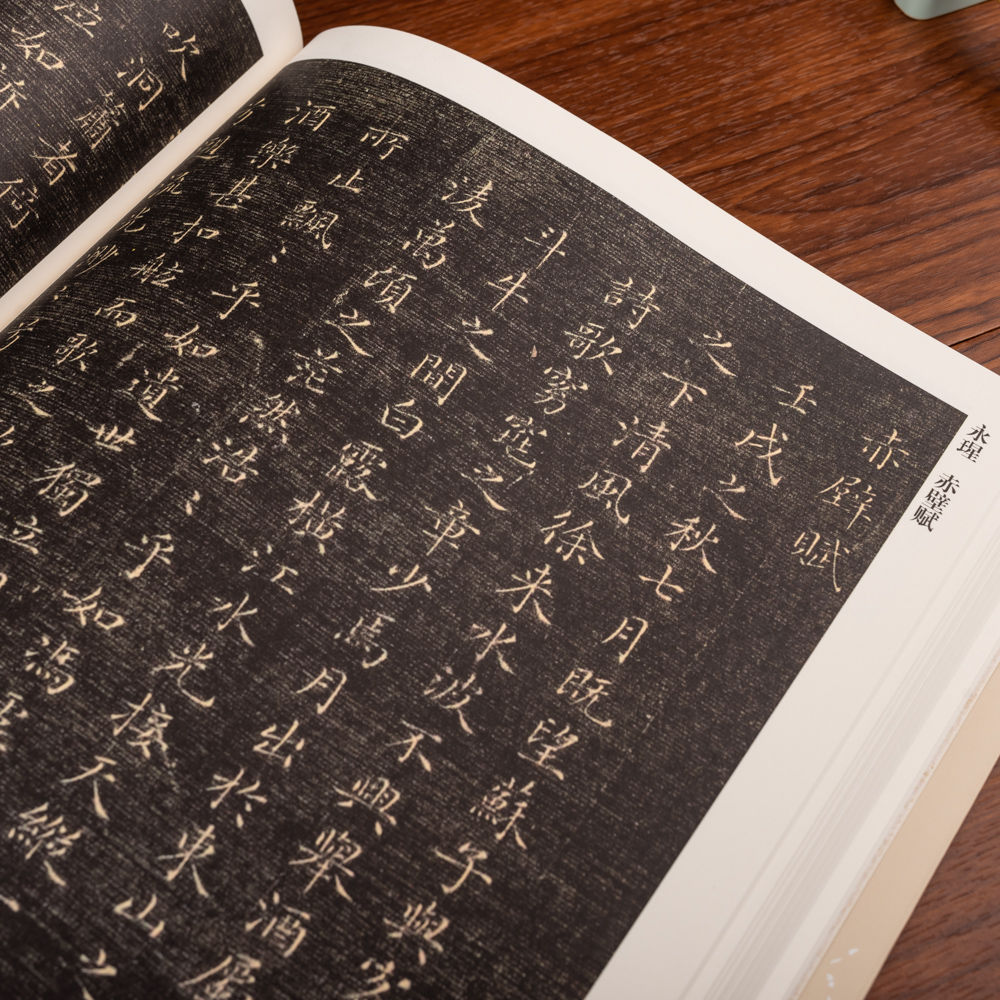 永瑆 赤壁赋
赤壁賦
壬戌之秋七月既望蘇子與客
之下清風徐来水波不興舉酒屬
詩歌窈窕之章少焉月出於東山之
斗牛之間白露横江水光接天縱一
淩萬頃之茫然浩〻乎如馮虛
所止飄〻乎如遺世獨立
酒樂甚扣舷而歌之
吹洞簫者倚
泣如